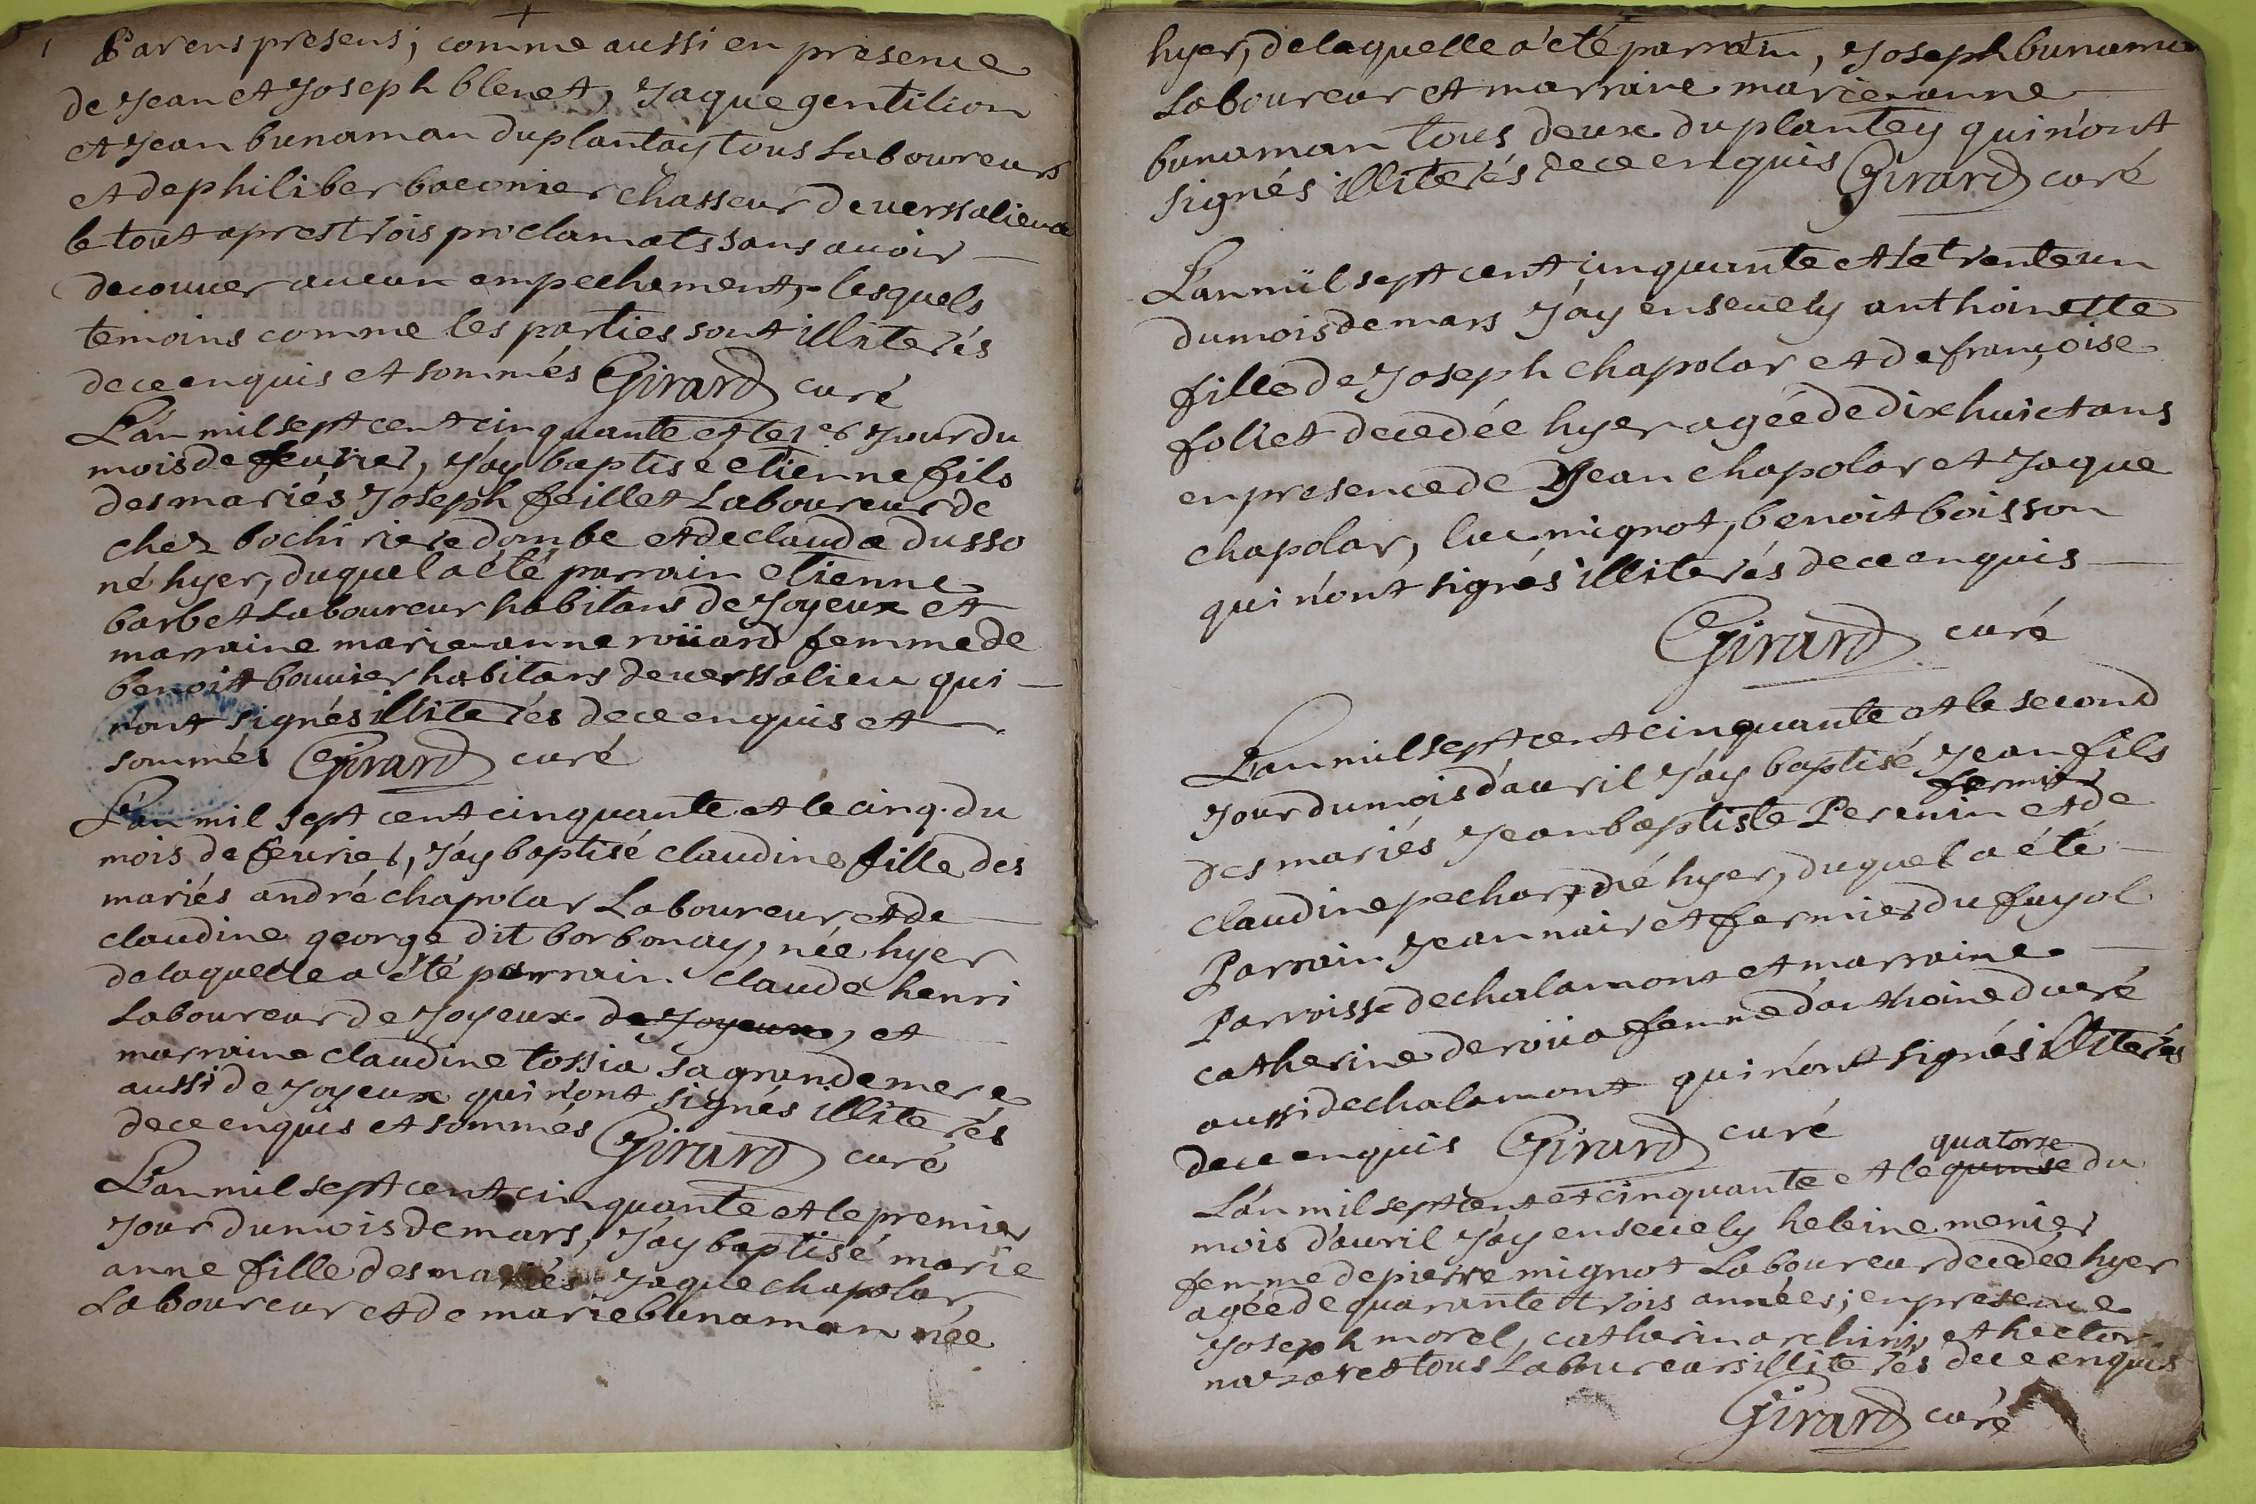 Parens presens; comme aussi en presence
de Jean et Joseph blenet, Jaque gentilion
et Jean bunaman du plantay tous Laboureurs
et de philiber baconier chasseur de verssalieux
le tout aprest trois proclamats sans avoir
decouver aucun empechement, lesquels
temoins comme les parties sont illiterés
de ce enquis et sommés Girard curé
L'an mil sept cent cinquante et le 1er Jour du
mois de feuvrier, J'ay baptisé etienne fils
des mariés Joseph feillet Laboureur de
chez bochi riere dombe et de claudæ dusso
né hyer, duquel a été parrain etienne
barbet Laboureur habitans de Joyeux et
marraine marie anne roüard femme de
benoit bouvier habitans de verssalieu qui
n'ont signés illiterés de ce enquis et
sommés Girard curé
L'an mil sept cent cinquante et le cinq. du
mois de feuvrier, J'ay baptisé claudine fille des
mariés andré chapolar Laboureur et de
claudine george dit borbonay, née hyer
de laquelle a été parrain claude henri
Laboureur de Joyeux de Joyeux, et
marraine claudine tossia sa grande mere
aussi de Joyeux qui n'ont signés illiterés
de ce enquis et sommés Girard curé
L'an mil sept cent cinquante et le premier
Jour du mois de mars, J'ay baptisé marie
anne fille des mariés Jaque chapolar,
Laboureur et de marie bunaman née
hyer, de laquelle a été parrain, Joseph bunaman
Laboureur et marraine marie anne
bunaman tous deux du plantey qui n'ont
signés illiterés de ce enquis Girard curé
L'an mil sept cent cinquante et le trente un
du mois de mars J'ay ensevely anthoinette
fille de Joseph chapolar et de françoise
foliet decedée hyer agée de dix huict ans
en presence de Jean chapolar et Jaque
chapolar, luc mignot, benoit boisson
qui n'ont signés illiterés de ce enquis
Girard curé
L'an mil sept cent cinquante et le second
Jour du mois d'avril J'ay baptisé Jean fils
fermier
des mariés Jean baptiste Perenin et de
claudine pechar, né hyer, duquel a été
Parrain Jean nair et fermier du fayol
Parroisse de chalamont et marraine
catherine de roüa femme d'anthoine ducré
aussi de chalamont qui n'ont signés illiterés
de ce enquis Girard curé
quatorze
L'an mil sept cent et cinquante et le quinse du
mois d'avril J'ay ensevely heleine menier
femme de pierre mignot Laboureur decedée hyer
agée de quarante trois années; en presence
Joseph morel, catherin archiri, et hector
nazaret tous Laboureurs illiterés de ce enquis
Girard curé